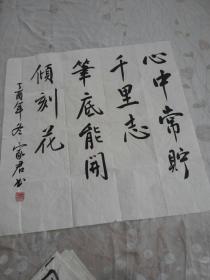 心中常貯
千里志
筆底能開
傾刻花
丁酉年冬家君书